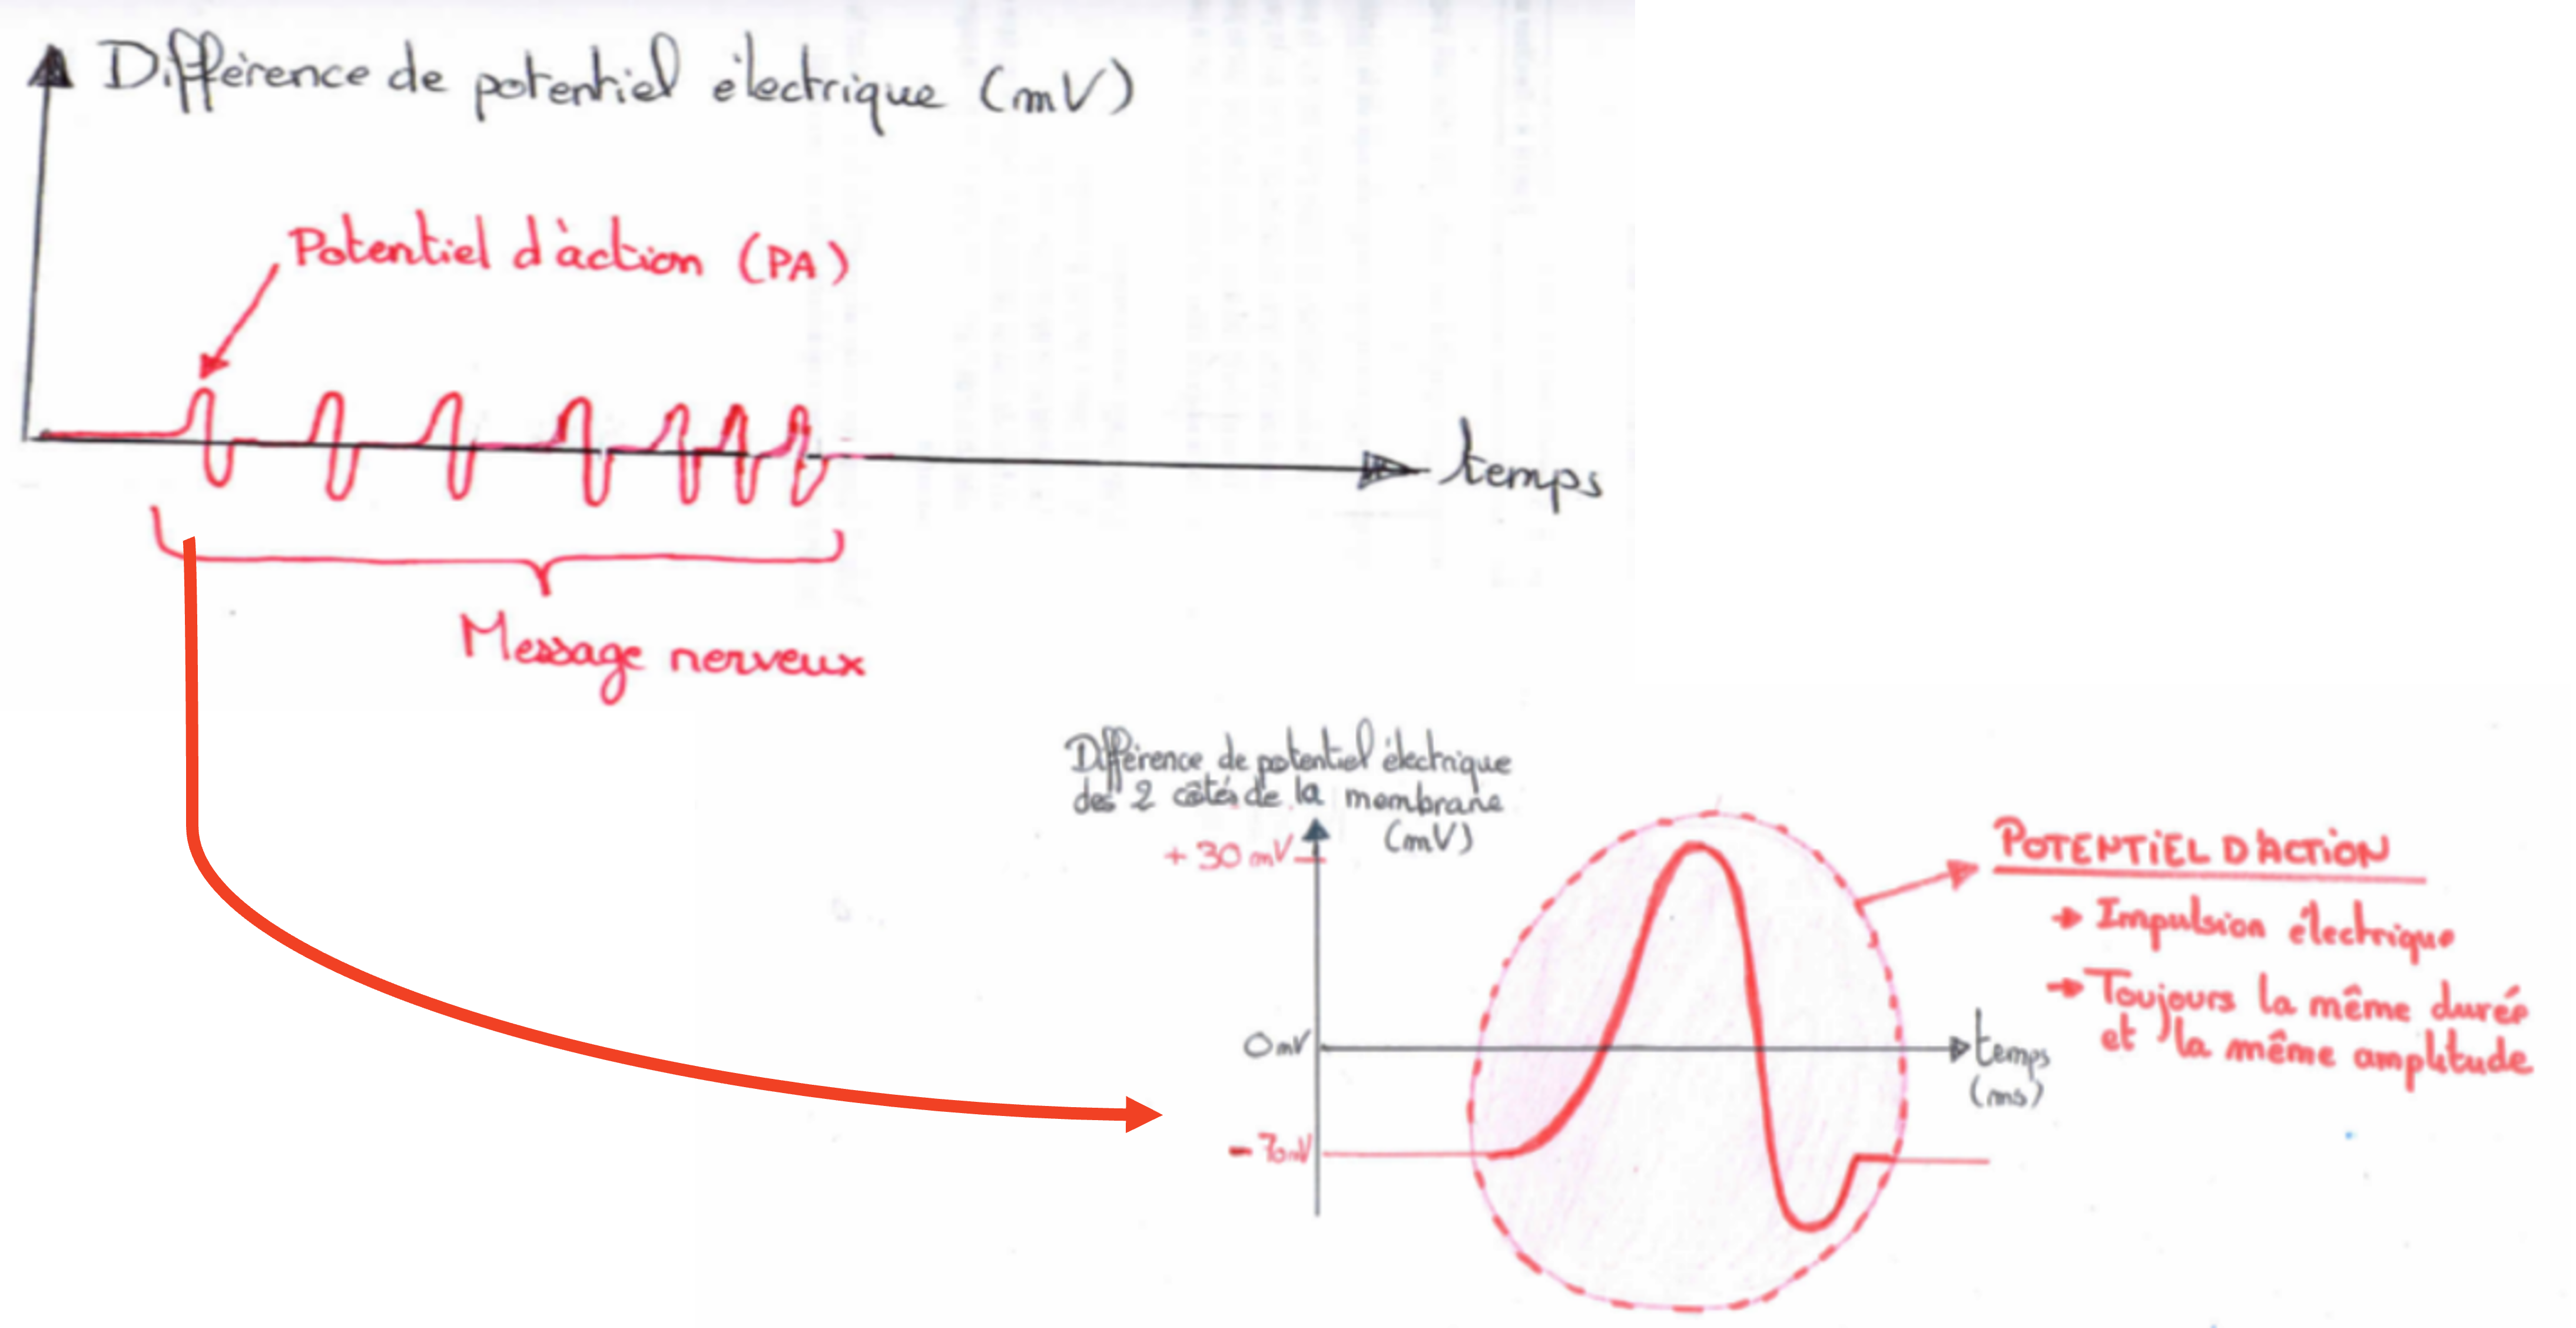 Différence de potentiel électrique (mV)
Potentiel d'action (PA)
temps
Message nerveux
Différence de potentiel électrique
des 2 côtés de la membrane
(mV)
+ 30 mV
0 mV
- 70 mV
temps
(ms)
POTENTIEL D'ACTION
→ Impulsion électrique
→ Toujours la même durée
et la même amplitude